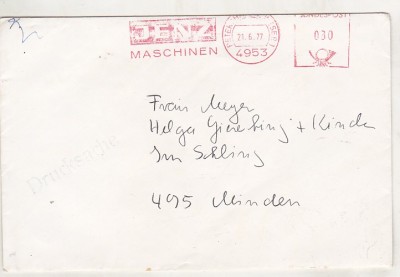 JENZ
MASCHINEN
21.6.77
4953
030
Frau Meyer
Helga Gieseking + Kinder
Im Schling
495 Minden
Drucksache